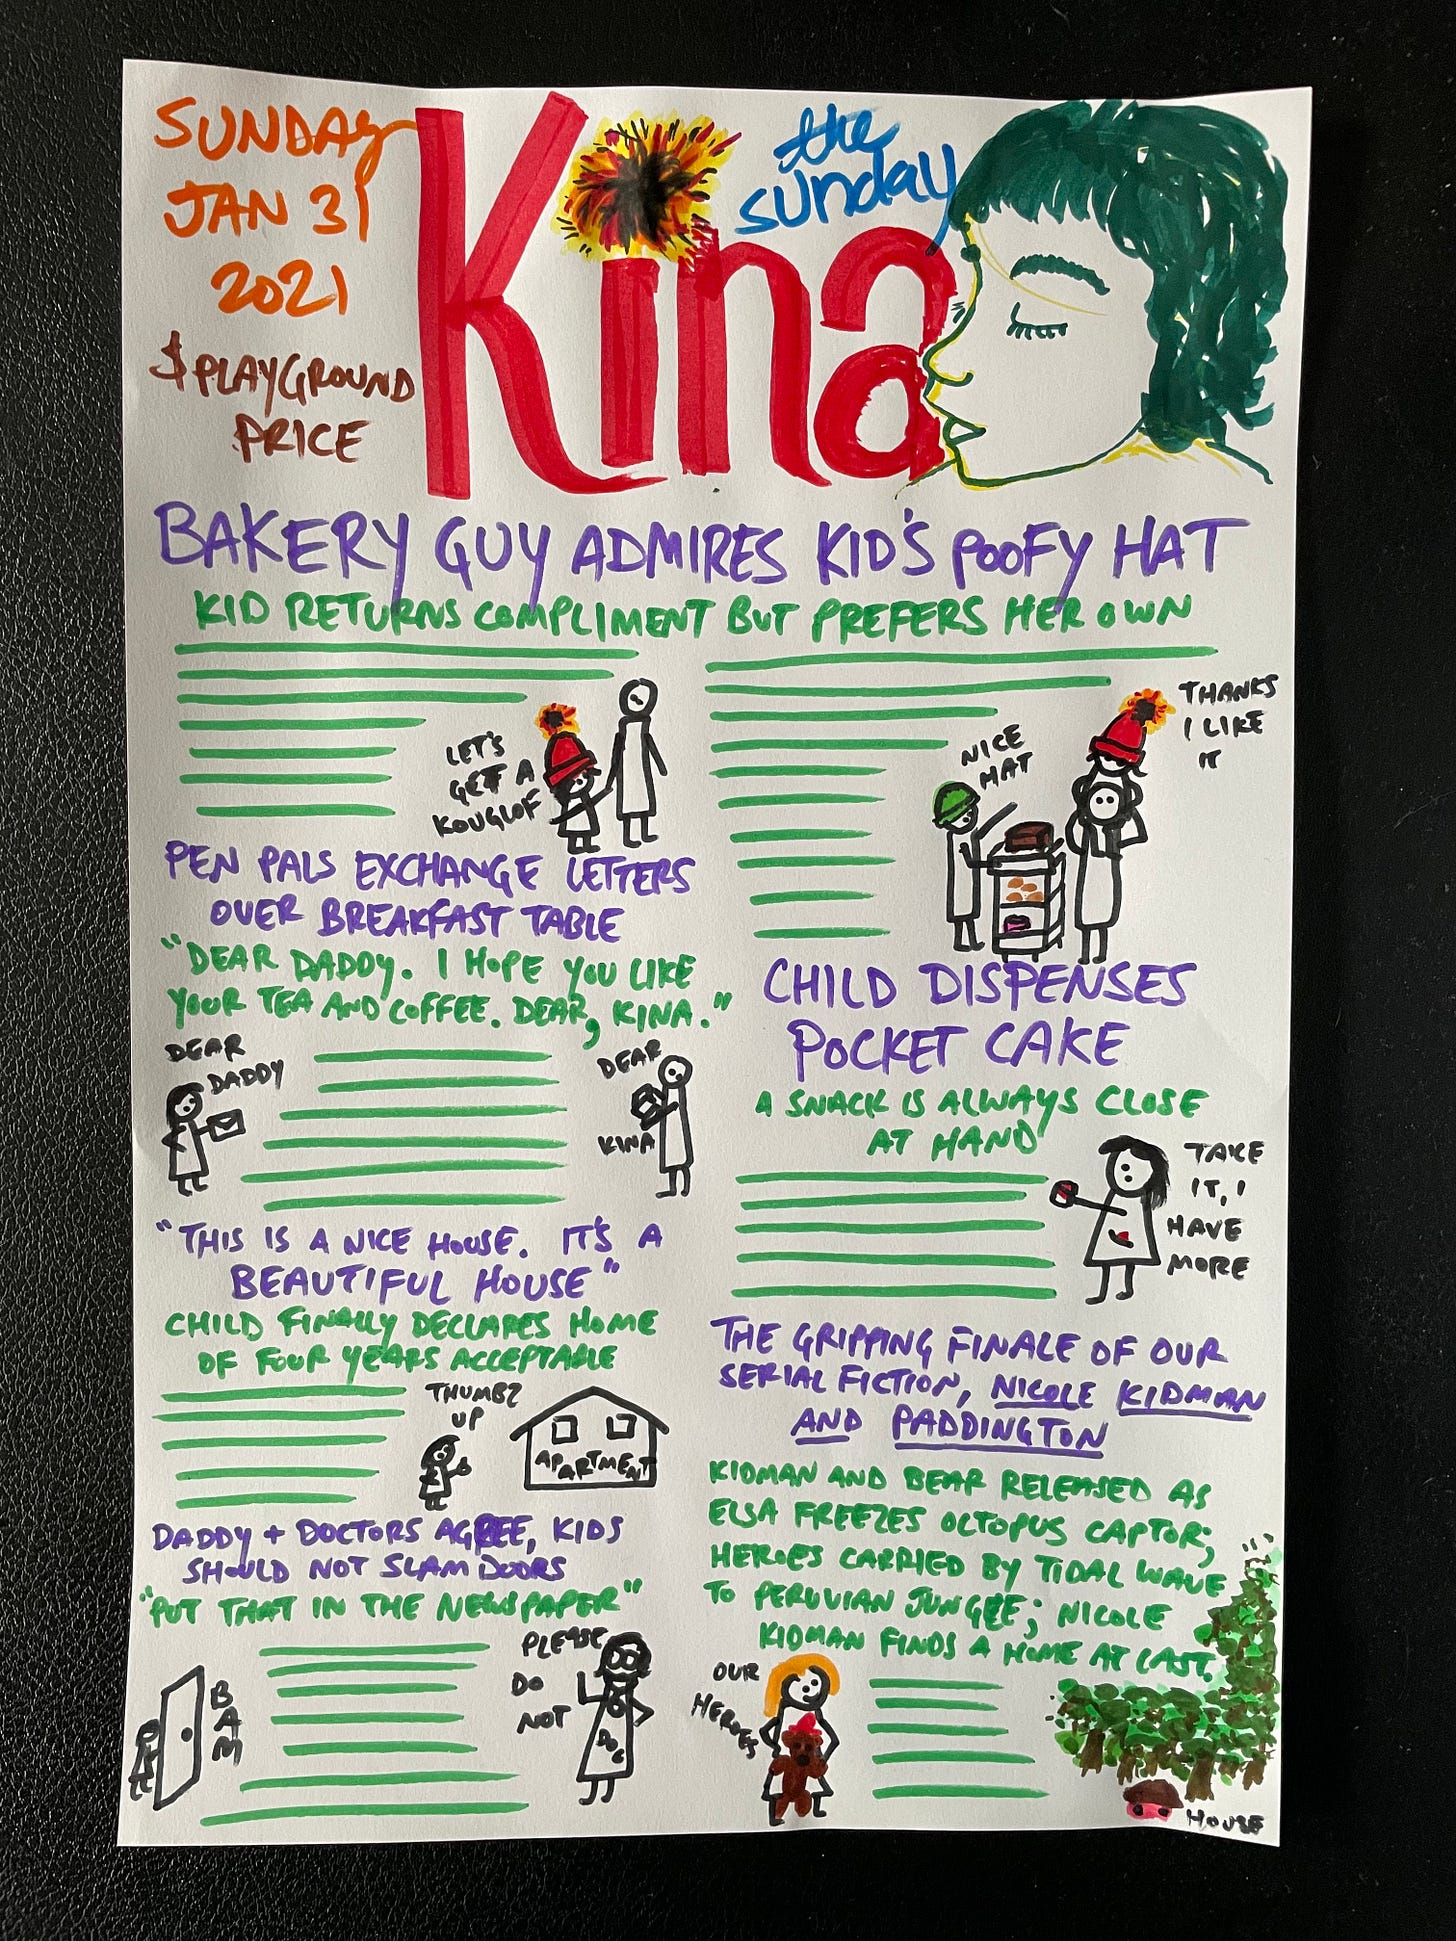 SUNDAY
JAN 31
2021
$PLAYGROUND
PRICE
the
sunday
Kina
BAKERY GUY ADMIRES KID'S POOFY HAT
KID RETURNS COMPLIMENT BUT PREFERS HER OWN
LET'S
GET A
KOUGLOF
NICE
HAT
THANKS
I LIKE
IT
PEN PALS EXCHANGE LETTERS
OVER BREAKFAST TABLE
"DEAR DADDY. I HOPE YOU LIKE
YOUR TEA AND COFFEE. DEAR, KINA."
DEAR
DADDY
DEAR
KINA
"THIS IS A NICE HOUSE. IT'S A
BEAUTIFUL HOUSE"
CHILD FINALLY DECLARES HOME
OF FOUR YEARS ACCEPTABLE
THUMBZ
UP
APARTMENT
DADDY + DOCTORS AGREE, KIDS
SHOULD NOT SLAM DOORS
"PUT THAT IN THE NEWSPAPER"
BAM
PLEASE
DO
NOT
DOC
CHILD DISPENSES
POCKET CAKE
A SNACK IS ALWAYS CLOSE
AT HAND
TAKE
IT, I
HAVE
MORE
THE GRIPPING FINALE OF OUR
SERIAL FICTION, NICOLE KIDMAN
AND PADDINGTON
KIDMAN AND BEAR RELEASED AS
ELSA FREEZES OCTOPUS CAPTOR;
HEROES CARRIED BY TIDAL WAVE
TO PERUVIAN JUNGLE; NICOLE
KIDMAN FINDS A HOME AT LAST.
OUR
HEROES
HOUSE